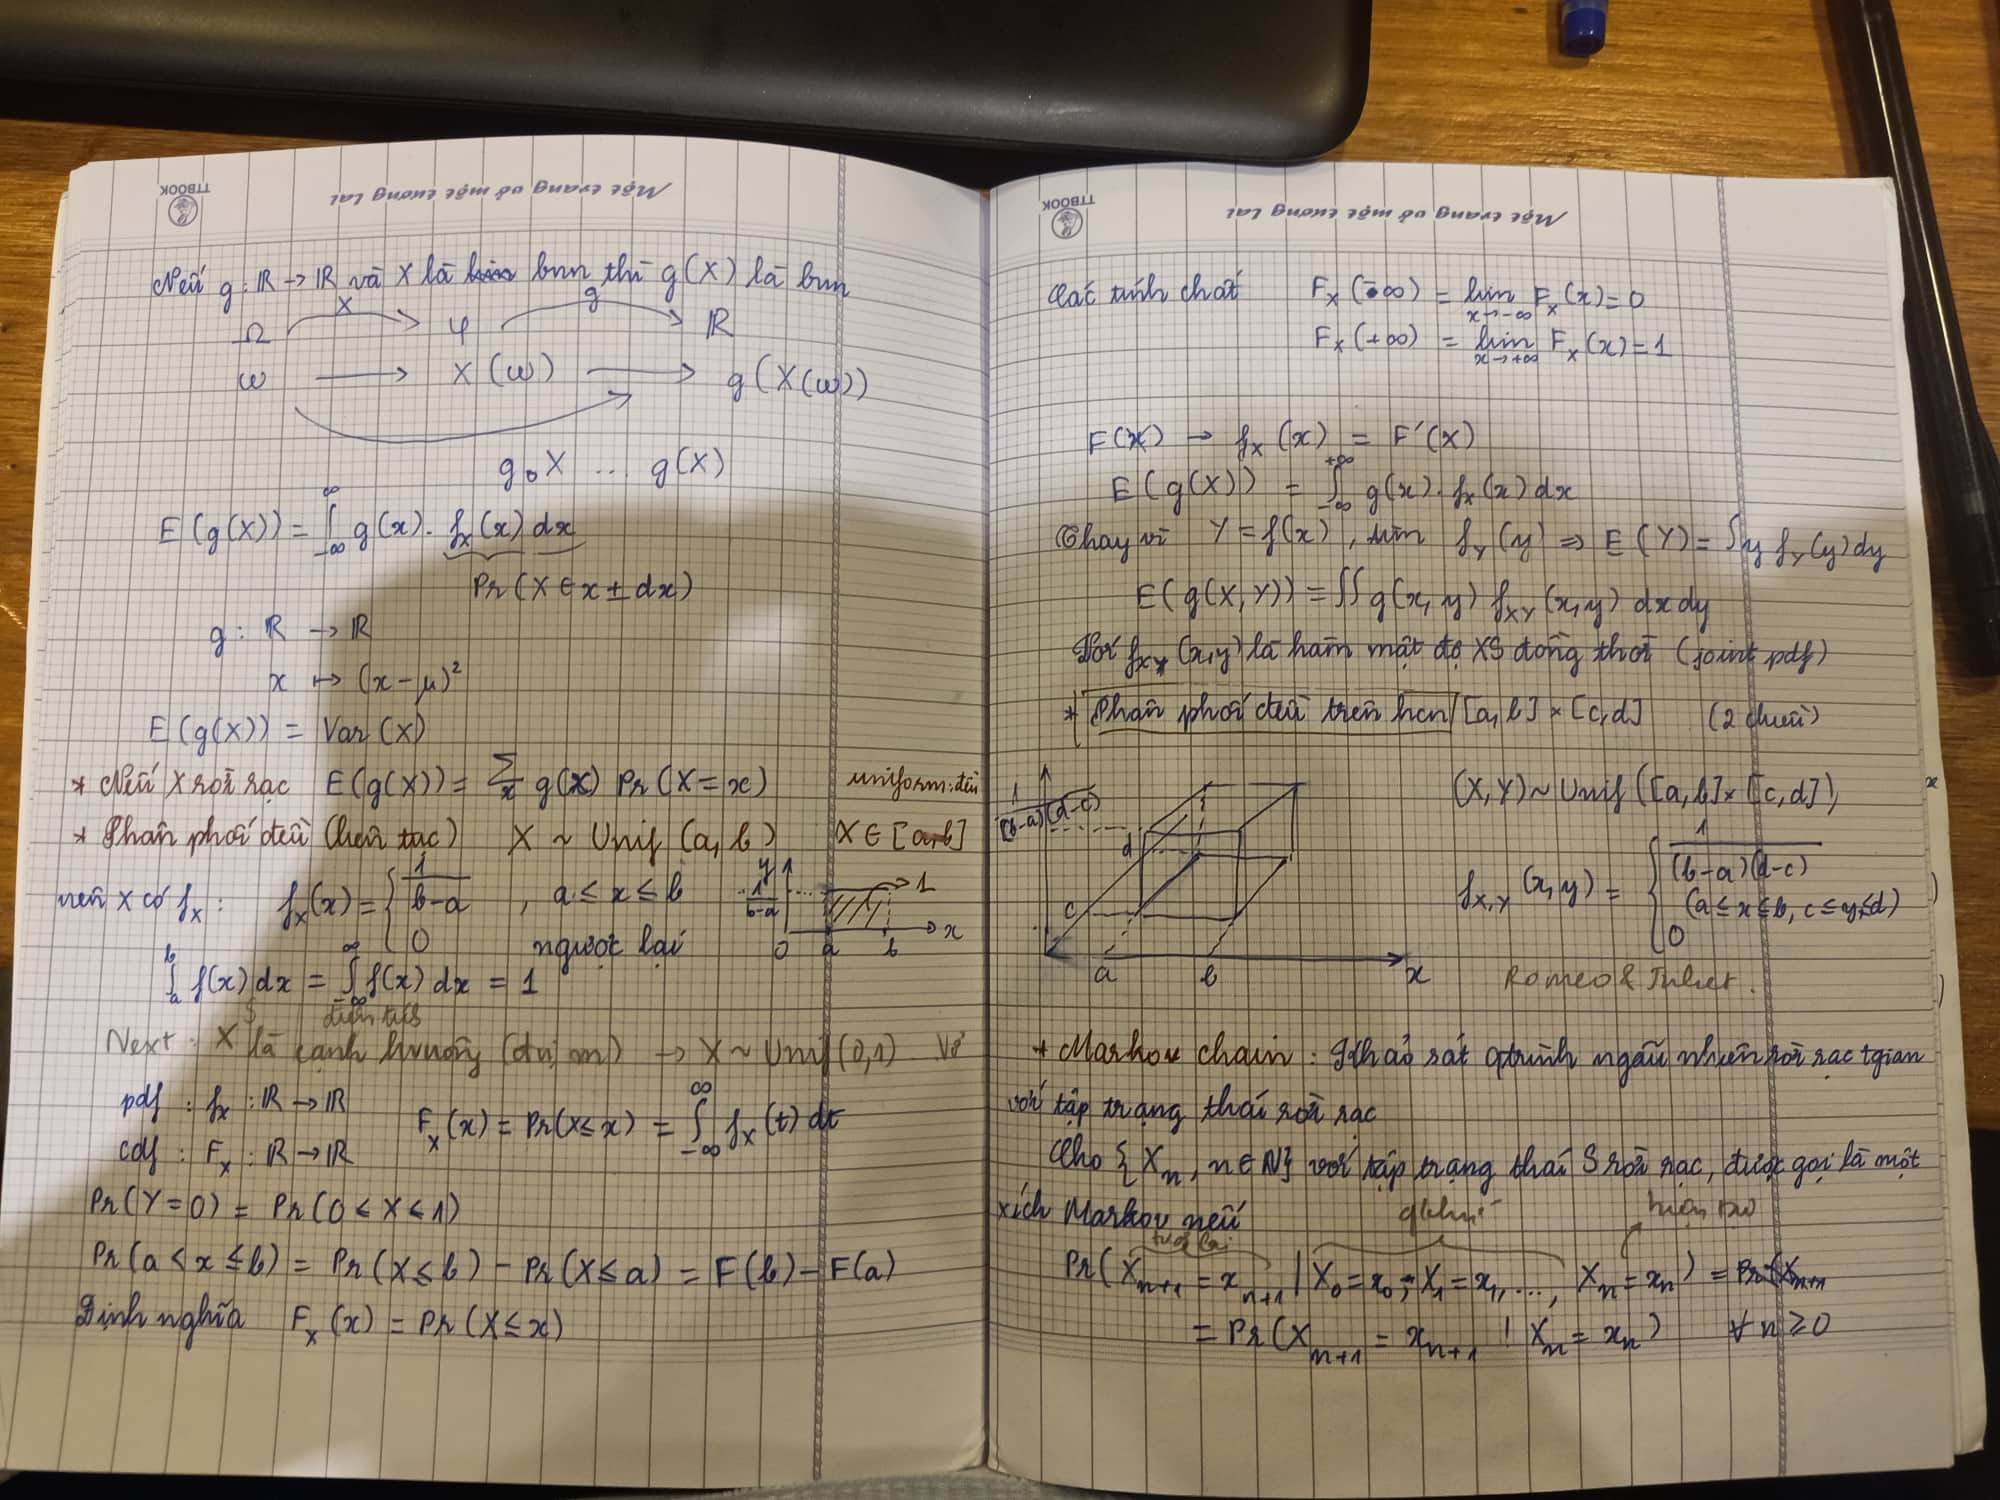 Một trang vở một tương lai
TTBOOK
Nếu g : ℝ → ℝ và X là bnn thì g(X) là bnn
X g
Ω φ ℝ
ω → X(ω) → g(X(ω))
g∘X ... g(X)
E(g(X)) = ∫_{-∞}^{∞} g(x). f_X(x) dx
Pr(X ∈ x ± dx)
g : ℝ → ℝ
x ↦ (x-μ)²
E(g(X)) = Var(X)
* Nếu X rời rạc E(g(X)) = Σ_x g(x) Pr(X=x) uniform: đều
* Phân phối đều (liên tục) X ~ Unif(a, b) X ∈ [a, b]
nên X có f_X : f_X(x) = { 1/(b-a) , a ≤ x ≤ b
0 ngược lại
y 1/(b-a) 1 0 a b x
∫_a^b f(x) dx = ∫_{-∞}^{∞} f(x) dx = 1
diện tích
Next : X là cạnh hvuông (đvị m) → X ~ Unif(0,1)
pdf : f_X : ℝ → ℝ
cdf : F_X : ℝ → ℝ F_X(x) = Pr(X ≤ x) = ∫_{-∞}^{∞} f_X(t) dt
Pr(Y = 0) = Pr(0 < X < 1)
Pr(a < x ≤ b) = Pr(X ≤ b) - Pr(X ≤ a) = F(b) - F(a)
Định nghĩa F_X(x) = Pr(X ≤ x)
Một trang vở một tương lai
TTBOOK
Các tính chất F_X(-∞) = lim_{x→-∞} F_X(x) = 0
F_X(+∞) = lim_{x→+∞} F_X(x) = 1
F(X) → f_X(x) = F'(X)
E(g(X)) = ∫_{-∞}^{+∞} g(x). f_X(x) dx
Thay vì Y = f(x), tìm f_Y(y) ⇒ E(Y) = ∫ y f_Y(y) dy
E(g(X,Y)) = ∬ g(x,y) f_{XY}(x,y) dx dy
Với f_{XY}(x,y) là hàm mật độ XS đồng thời (joint pdf)
* Phân phối đều trên hcn [a,b] × [c,d] (2 chiều)
1/((b-a)(d-c))
d
c
a b x
(X,Y) ~ Unif([a,b] × [c,d])
f_{X,Y}(x,y) = { 1/((b-a)(d-c))
(a ≤ x ≤ b, c ≤ y ≤ d)
0
Romeo & Juliet.
* Markov chain : Khảo sát qtrình ngẫu nhiên rời rạc tgian
với tập trạng thái rời rạc
Cho {X_n, n ∈ N} với tập trạng thái S rời rạc, được gọi là một
xích Markov nếu
tương lai qkhứ hiện tại
Pr(X_{n+1} = x_{n+1} | X_0 = x_0, X_1 = x_1, ..., X_n = x_n) = Pr(X_{n+1}
= Pr(X_{n+1} = x_{n+1} | X_n = x_n) ∀ n ≥ 0